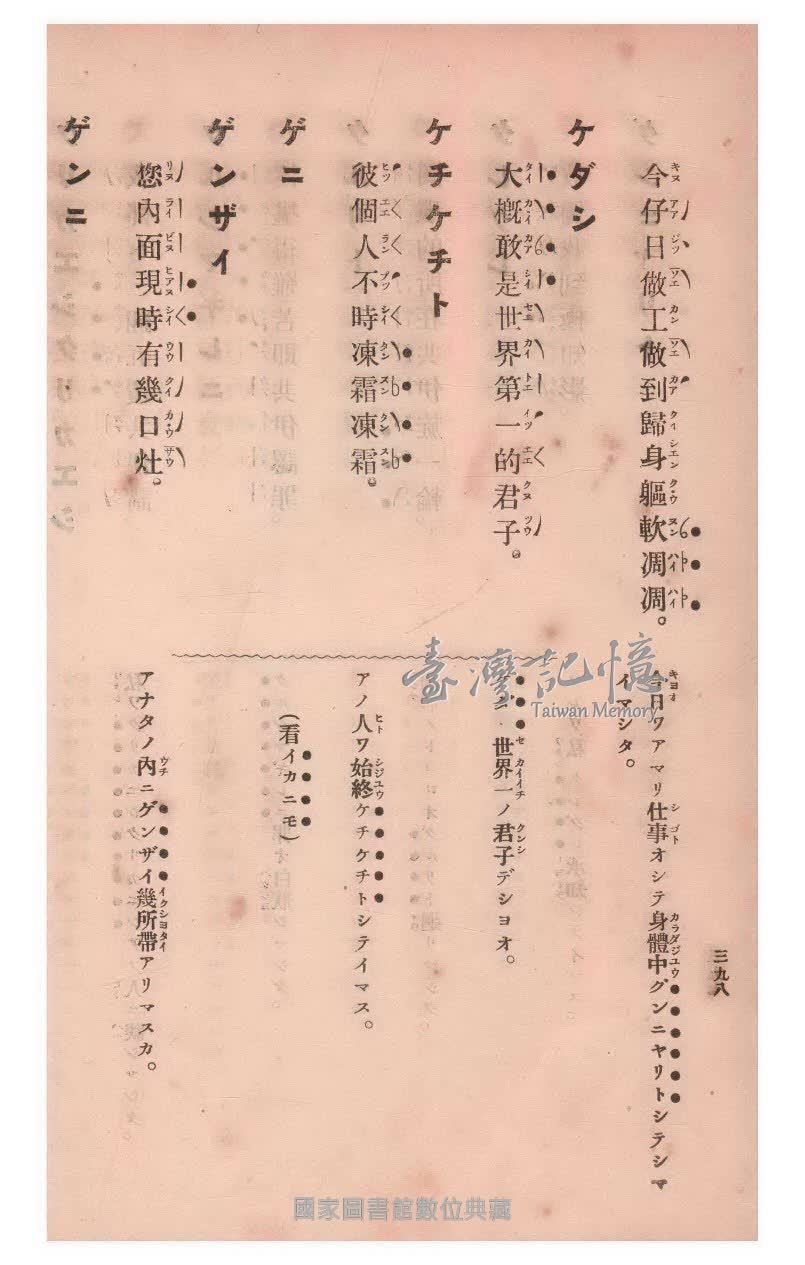 三九八
今仔日做工做到歸身軀軟凋凋。
今日ワアマリ仕事オシテ身體中グンニャリトシテシマ
イマシタ。
ケダシ
大槪敢是世界第一的君子。
世界一ノ君子デショオ。
ケチケチト
彼個人不時凍霜凍霜。
アノ人ワ始終ケチケチトシテイマス。
ゲニ
(看イカニモ)
ゲンザイ
您內面現時有幾口灶。
アナタノ內ニゲンザイ幾所帶アリマスカ。
ゲンニ
臺灣記憶
Taiwan Memory
國家圖書館數位典藏